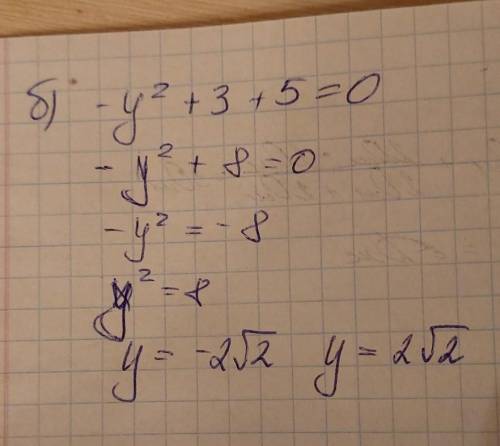 б) -y² + 3 + 5 = 0
-y² + 8 = 0
-y² = -8
y² = 8
y = -2√2 y = 2√2